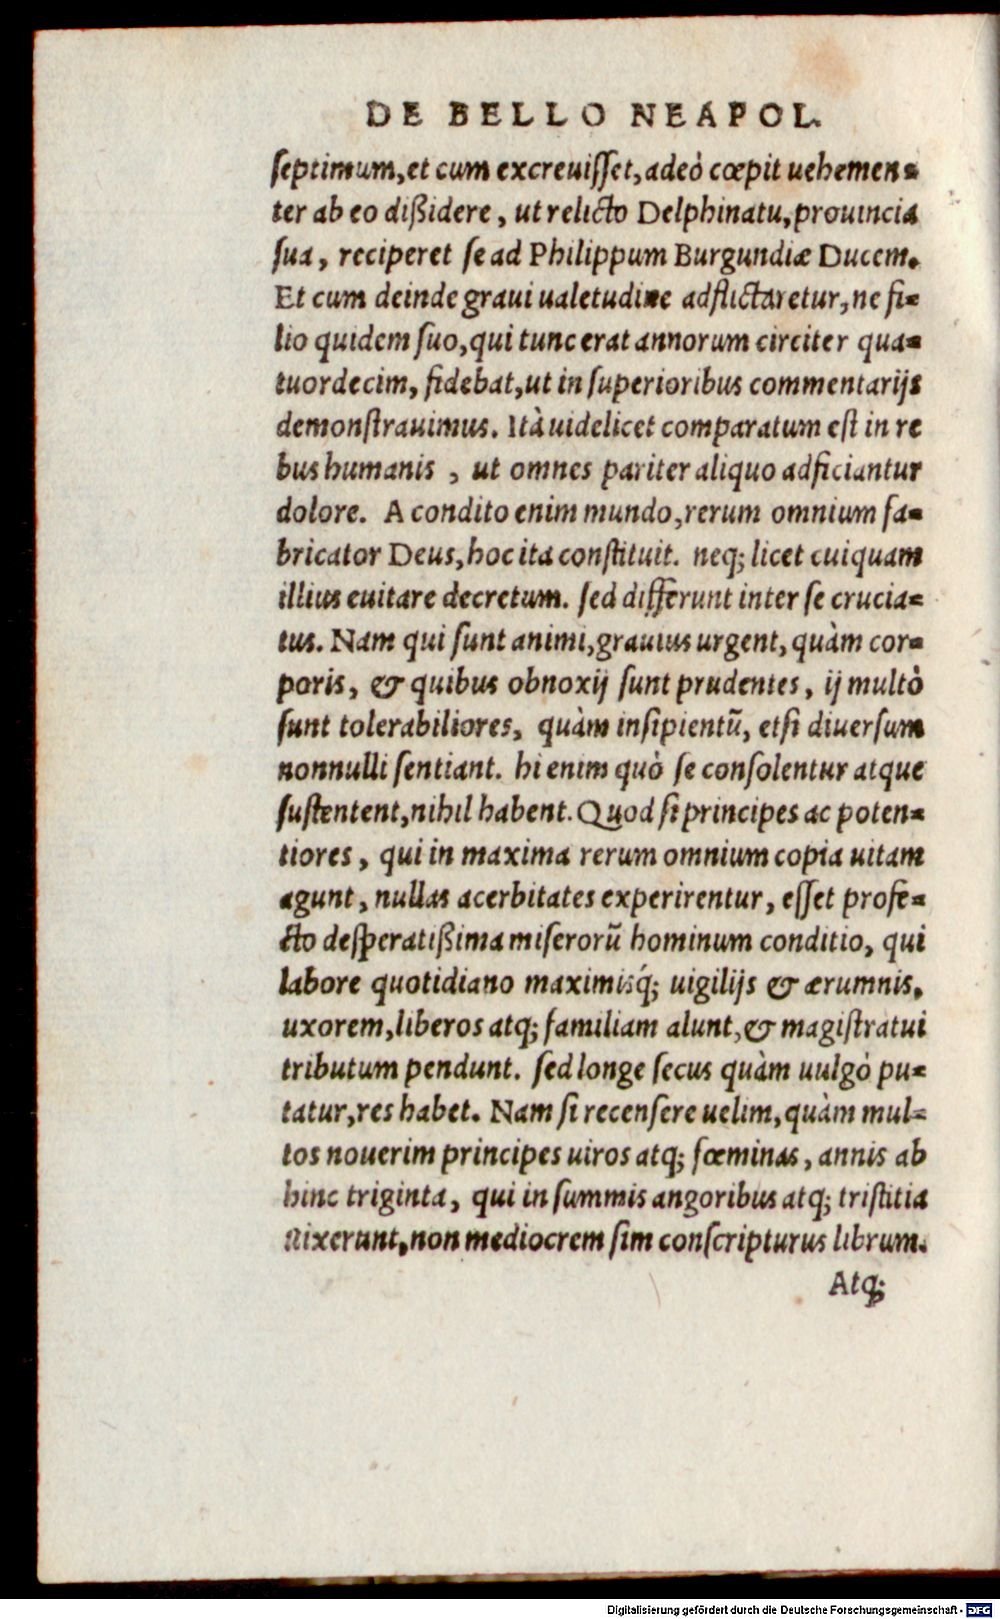 DE BELLO NEAPOL.
ſeptimum, et cum excreuiſſet, adeò cœpit uehemen=
ter ab eo dißidere, ut relicto Delphinatu, prouincia
ſua, reciperet ſe ad Philippum Burgundiæ Ducem.
Et cum deinde graui ualetudine adflictaretur, ne fi=
lio quidem ſuo, qui tunc erat annorum circiter qua=
tuordecim, fidebat, ut in ſuperioribus commentarijs
demonſtrauimus. Ità uidelicet comparatum eſt in re
bus humanis, ut omnes pariter aliquo adficiantur
dolore. A condito enim mundo, rerum omnium fa=
bricator Deus, hoc ita conſtituit. neq; licet cuiquam
illius euitare decretum. ſed differunt inter ſe crucia=
tus. Nam qui ſunt animi, grauius urgent, quàm cor=
poris, & quibus obnoxij ſunt prudentes, ij multò
ſunt tolerabiliores, quàm inſipientū, etſi diuerſum
nonnulli ſentiant. hi enim quò ſe conſolentur atque
ſuſtentent, nihil habent. Quod ſi principes ac poten=
tiores, qui in maxima rerum omnium copia uitam
agunt, nullas acerbitates experirentur, eſſet profe=
cto deſperatißima miſerorū hominum conditio, qui
labore quotidiano maximisq́; uigilijs & ærumnis,
uxorem, liberos atq; familiam alunt, & magiſtratui
tributum pendunt. ſed longe ſecus quàm uulgò pu=
tatur, res habet. Nam ſi recenſere uelim, quàm mul=
tos nouerim principes uiros atq; fœminas, annis ab
hinc triginta, qui in ſummis angoribus atq; triſtitia
uixerunt, non mediocrem ſim conſcripturus librum.
Atq;
Digitalisierung gefördert durch die Deutsche Forschungsgemeinschaft - DFG